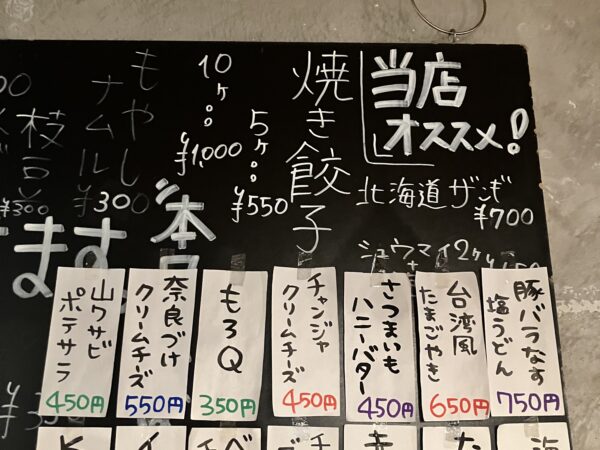 当店
オススメ!
北海道ザンギ
¥700
シュウマイ2ケ
焼き餃子
5ケ・・・
¥550
10ケ・・・
¥1,000
もやし
ナムル
300
枝豆
¥300
ます。
本日
豚バラなす
塩うどん
750円
台湾風
たまごやき
650円
さつまいも
ハニーバター
450円
チャンジャ
クリームチーズ
450円
もろQ
350円
奈良づけ
クリームチーズ
550円
山ワサビ
ポテサラ
450円